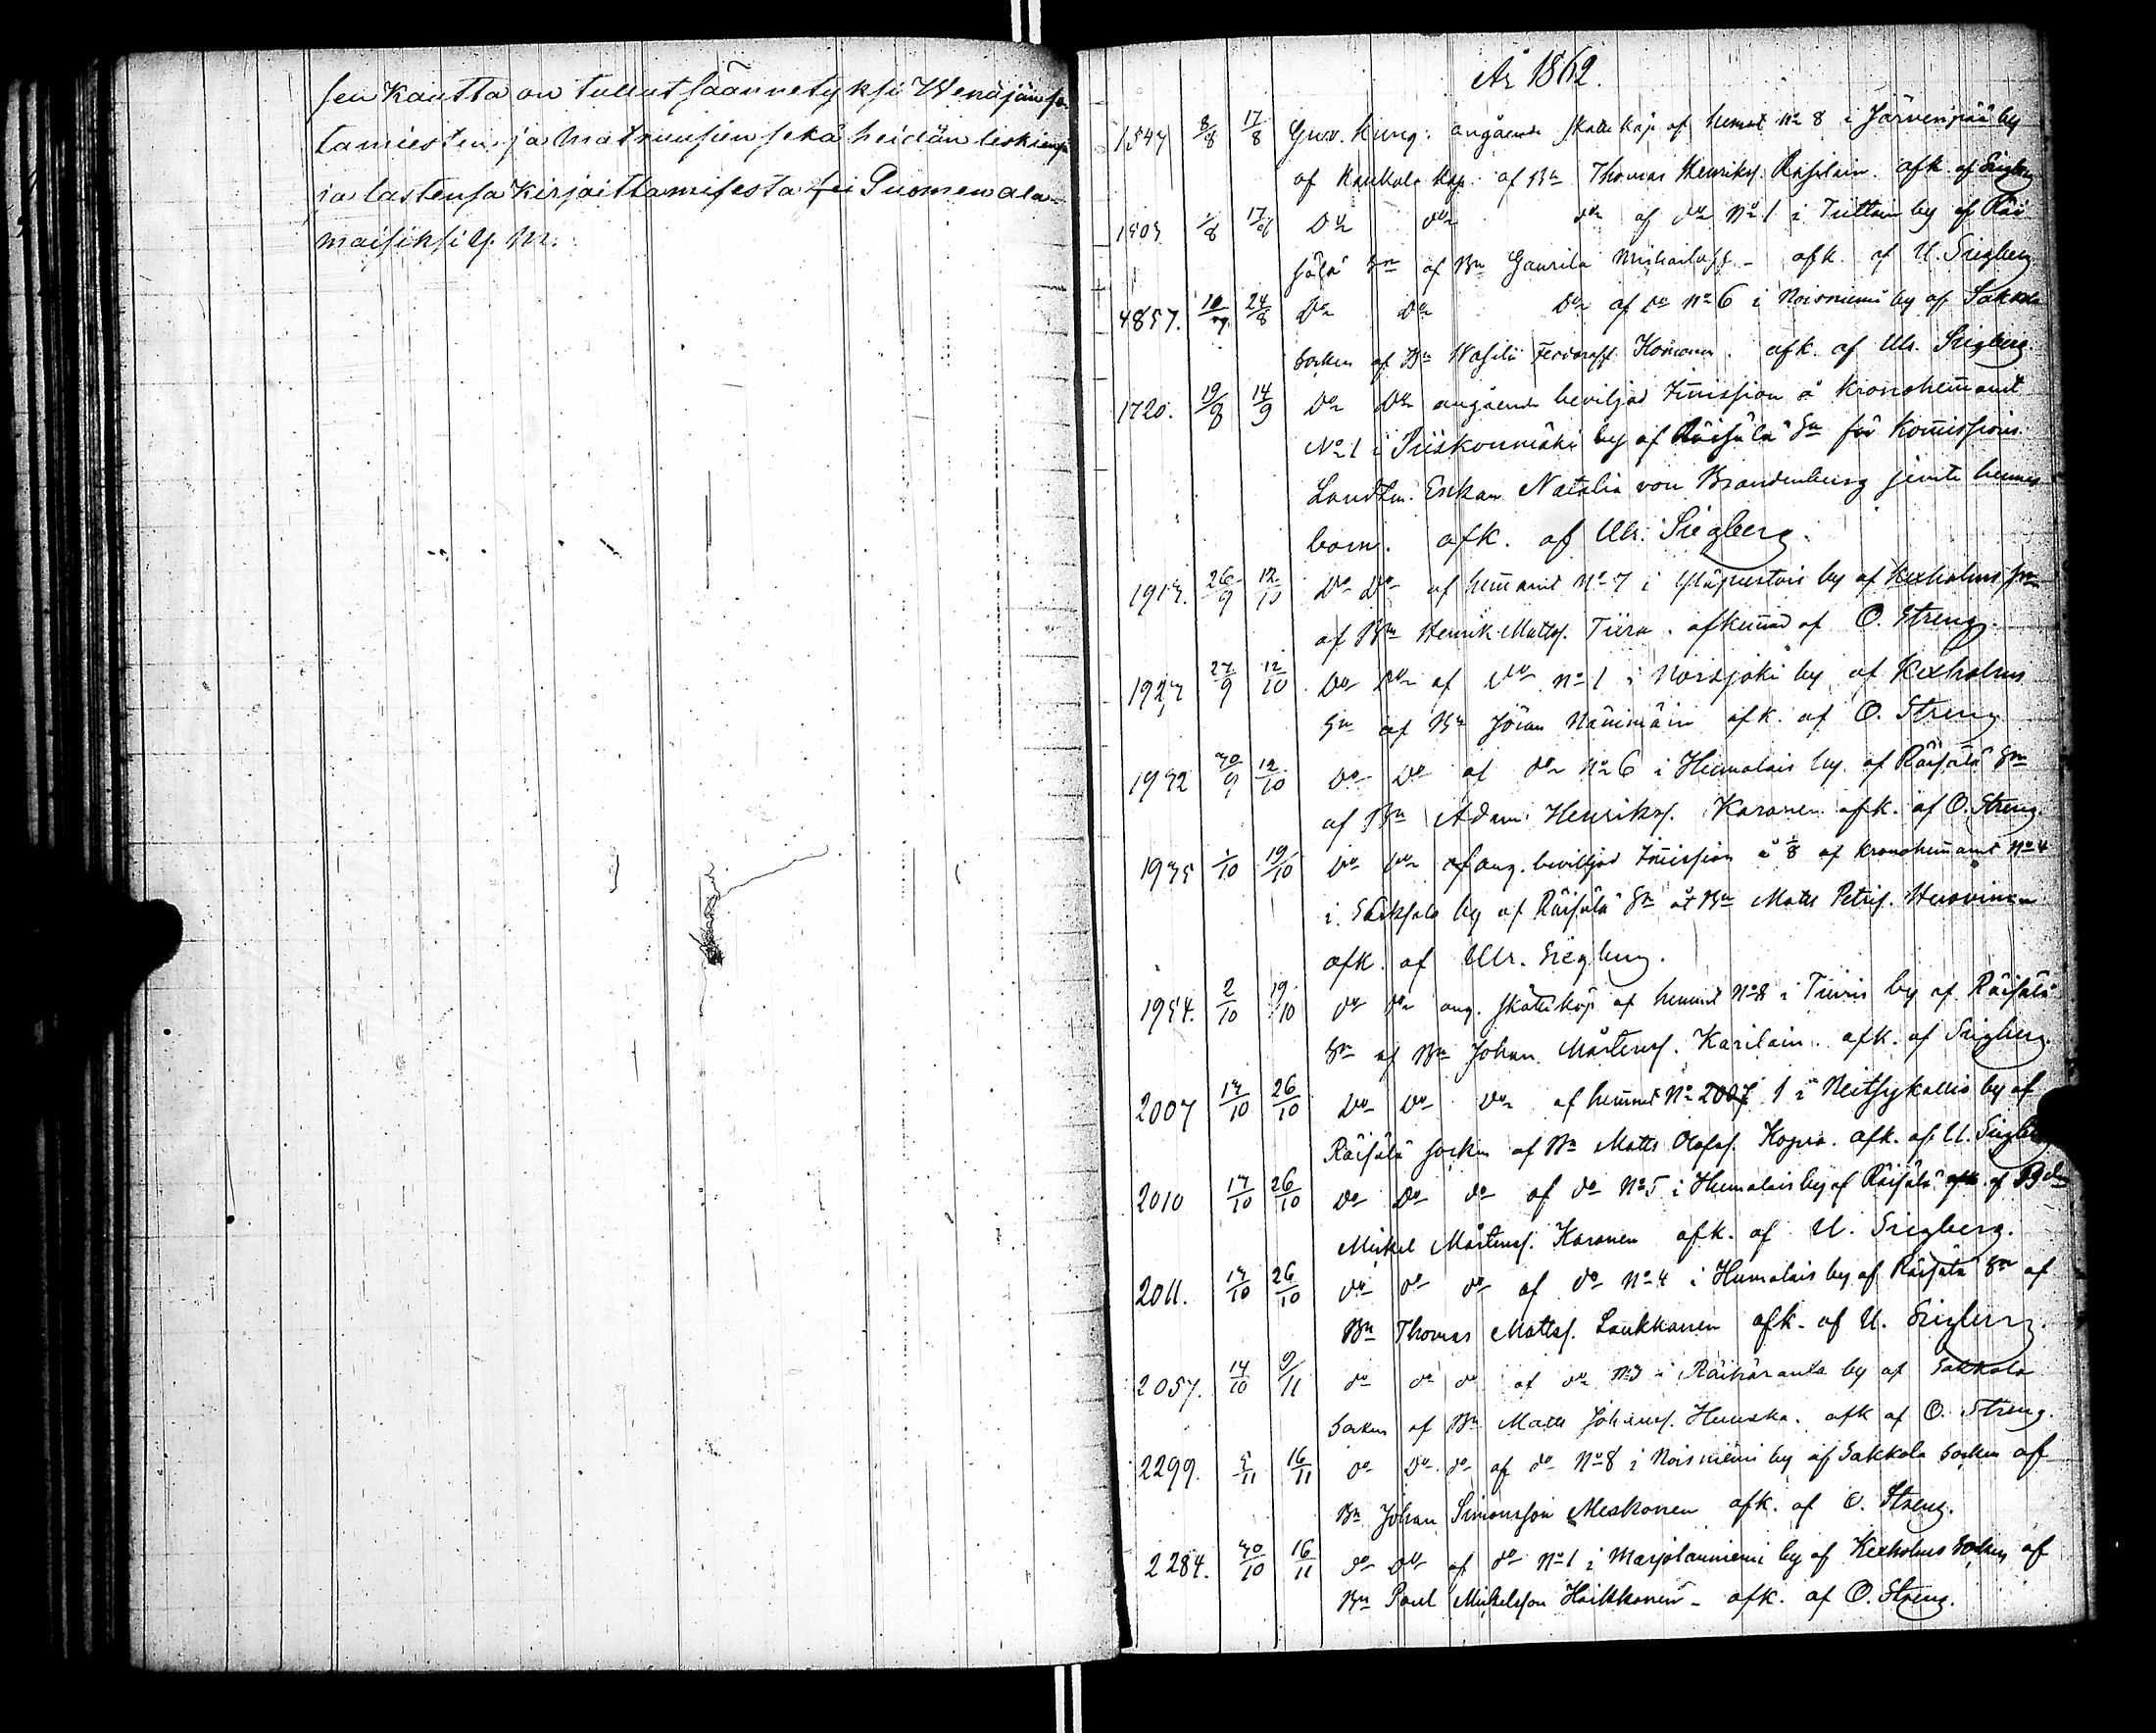 sen Kautta on tullut säännetyksi Wenäjän so-
tamiesten ja Matruusien sekä heidän leskiensä
ja lastensa Kirjoittamisesta Suomen ala-
maisiksi y. m.
År 1862.
1547 8/8 17/8 Guv. Kung: angående skatteköp af hemmt No 8 i Järvenpää by
af Kaukola Kap. af Bn Thomas Henrikss. Räisäläin afk. af Siegberg
1/8 17/8 Do Do do af do No 1 i by af Räi
sälä Sn af Bn Gavrila Michailoff - afk. af U. Siegberg
4857. 24/8 Do Do Do af do No 6 i Noisniemi by af Sakkola
Socken af Bn Wasili Fedoroff afk. af Ulr. Siegberg.
1720. 19/8 14/9 Do Do angående beviljad Immission å Kronohemmanet
No 1 i Piiskonmäki by af Räisälä Sn för Kommissions
Landtm. Enkan Natalia von Brandenburg jemte hennes
barn. afk. af Ulr. Siegberg.
1913. 26/9 12/10 Do Do af hemmanet No 7 i by af Kexholms Sn
af Bn Henrik Mattss. Tiira. afkunnad af O. Streng.
1927 27/9 12/10 Do Do af do No 1 i Norsjoki by af Kexholms
Sn af Bn Jöran Nämmäin afk. af O. Streng
1932 30/9 12/10 Do Do af do No 6 i Humalais by af Räisälä Sn
af Bn Adam Henrikss. Karonen afk. af O. Streng.
1935 1/10 19/10 Do Do ang. bevilljad Immission å 1/8 af Kronohemmanet No 4
i Särkisalo by af Räisälä Sn åt Bn Matts Petriss. Hurvinen
afk. af Ulr. Siegberg.
1954. 2/10 19/10 do do ang. skatteköp af hemmt No 8 i Tiuris by af Räisälä
Sn af Bn Johan Mårtenss. Karilain. afk. af Siegberg.
2007 13/10 26/10 Do Do Do af hemmt No 2007 1 i Neitsykallio by af
Räisälä socken af Bn Matts Olofss. Kopra. afk. af U. Siegberg
2010 13/10 26/10 Do Do do af do No 5 i Humalais by af Räisälä afk. af Bdn
Mickel Mårtenss. Karonen afk. af U. Siegberg.
2011. 13/10 26/10 do do do af do No 4 i Humalais by af Räisälä Sn af
Bn Thomas Mattss. Laukkanen afk. af U. Siegberg.
2057. 14/10 9/11 do do do af do No 3 i Räihäranta by af Sakkola
Socken af Bn Matts Johanss. Hunska. afk af O. Streng.
2299. 5/11 16/11 do Do do af do No 8 i Noisniemi by af Sakkola socken af
Bn Johan Simonsson Meskonen afk. af O. Streng.
2284. 30/10 16/11 do Do af do No 1 i Marjolanniemi by af Kexholms Socken af
Bn Paul Mickelsson Häikkonen - afk. af O. Streng.